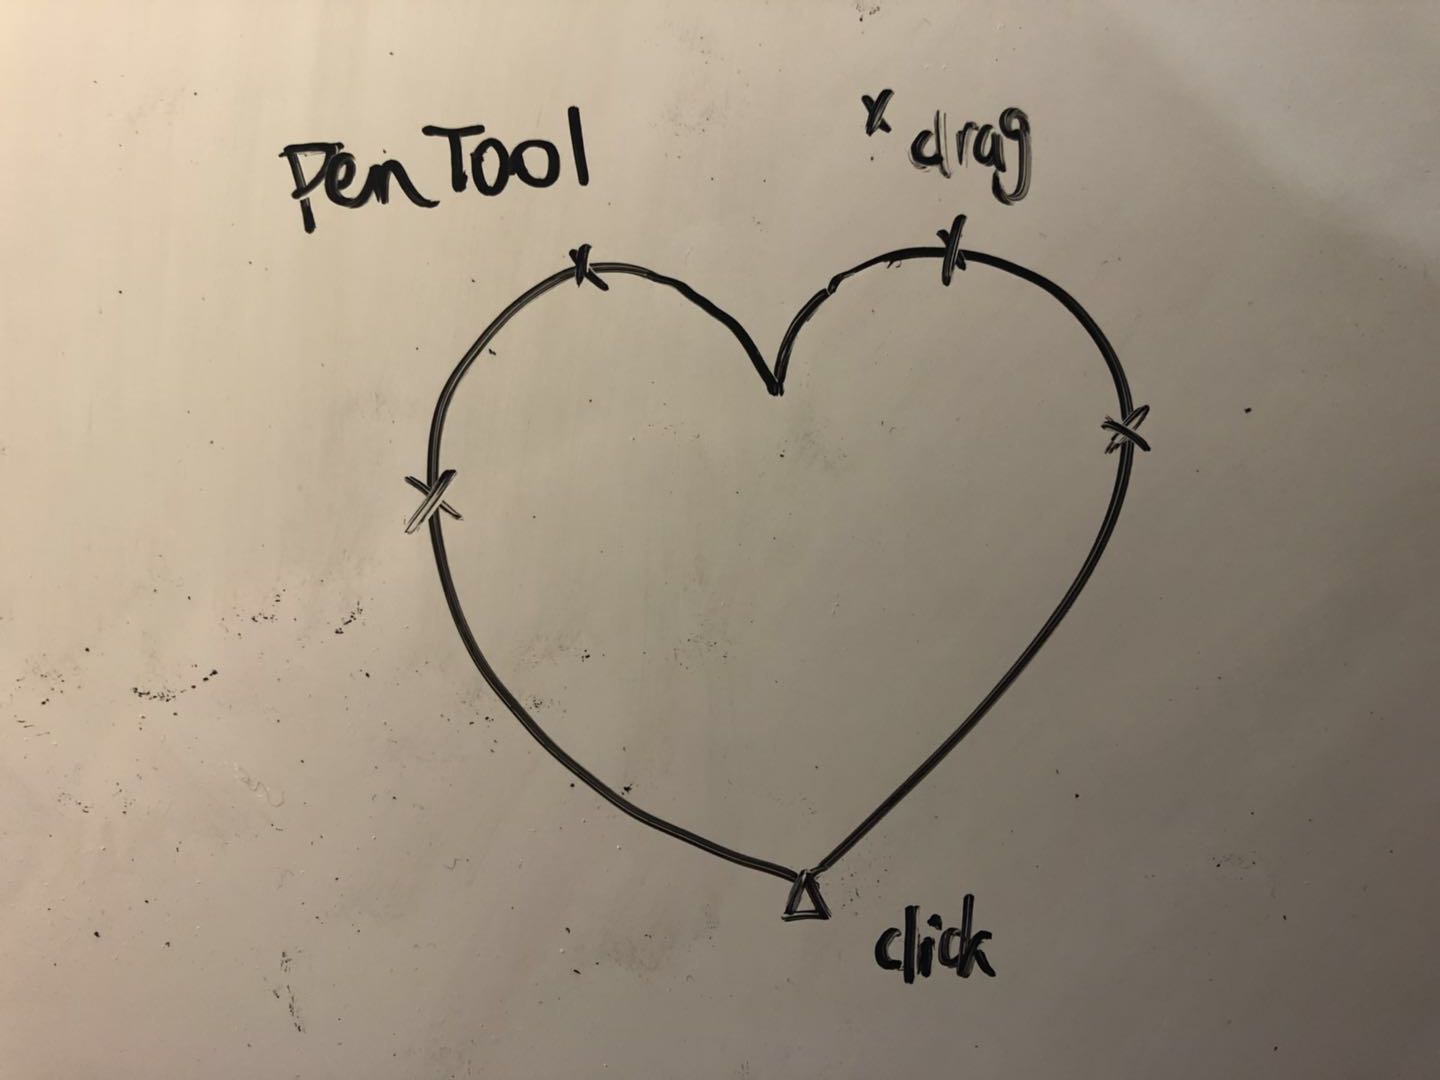 Pen Tool
x drag
click